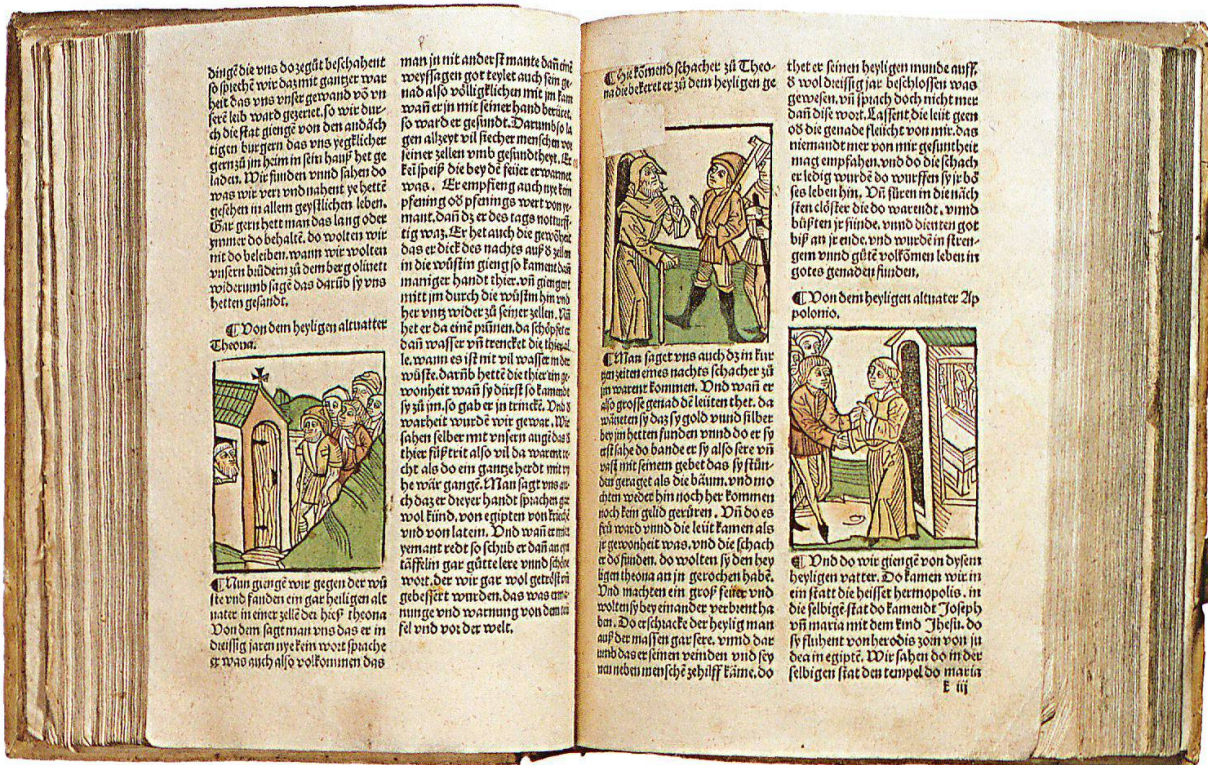 dingē die vns do zegůt beschahent
so sprechē wir daz mit gantzer war
heit das vns vnser gewand vō vn
serē leib ward gezeret. so wir dur-
ch die stat giengē von den andäch
tigen burgern das vns yegklicher
gern zů jm heim in sein hauß het ge
laden. Wir funden vnnd sahen do
was wir verr vnd nahent ye hettē
gesehen in allem geystlichen leben.
Gar gern hett man das lang oder
ymmer do behaltē. do wolten wir
nit do beleiben. wann wir wolten
vnsern brůdern zů dem berg oliuett
widerumb sagē das darūb sy vns
hetten gesandt.
¶ Von dem heyligen altuatter
Theona.
¶ Nun giengē wir gegen der wů
ste vnd fanden ein gar heiligen alt
uater in einer zellē der hieß theona
Von dem sagt man vns das er in
dreissig jaren nye kein wort sprache
er was auch also volkommen das
man jn nit anderst mante dañ einē
weyssagen got teylet auch sein ge-
nad also völligklichen mit jm kam
wañ er jn mit seiner hand berüret.
so ward er gesundt. Darumb so la
gen allzeyt vil siecher menschen vor
seiner zellen vmb gesundtheyt. Er
keī speiß die bey dē feüer erwarmet
was. Er empfieng auch nye kein
pfening oδ pfenings wert von ye-
mant. dañ dz er des tags notturff
tig waz. Er het auch die gewōheit
das er dick des nachts auß δ zellen
in die wůstin gieng so kament dañ
maniger handt thier. vñ giengent
mitt jm durch die wůstin hin vnd
her vntz wider zů seiner zellen. Vñ
het er da einē prunnen. da schöpfet er
dañ wasser vñ trencket die thier al
le. wann es ist nit vil wasser in der
wůste. darūb hettē die thier ein ge-
wonheit wañ sy dürst so kament
sy zů jm. so gab er jn trinckē. Vnd δ
warheit wurdē wir gewar. Wir
sahen selber mit vnsern augē das δ
thier fůßtrit also vil da warent re-
cht als do ein gantze herdt mit vi
he wär gangē. Man sagt vns au-
ch daz er dreyer handt sprachen gar
wol kund. von egipten von kriechē
vnd von latein. Vnd wañ er mit
yemant redt so schrib er dañ an ein
täffelin gar gůtte lere vnnd schöne
wort. der wir gar wol getröst vñ
gebessert wurden. das was ma-
nunge vnd warnung von dem teu
fel vnd vor der welt.
¶ Hie kōmend schacher zů Theo-
na die bekeret er zů dem heyligen ge
¶ Man saget vns auch dz in kur
tzen zeiten eines nachts schacher zů
jm warent kommen. Vnd wañ er
also grosse genad dē leüten thet. da
wäneten sy daz sy gold vnnd silber
bey jm hetten funden vnnd do er sy
erst sahe do bande er sy also sere vñ
vast mit seinem gebet das sy stůn-
den geraget als die bäum. vnd mo
chten weder hin noch her kommen
noch kein gelid gerüren. Vñ do es
frů ward vnnd die leüt kamen als
jr gewonheit was. vnd die schach
er do funden. do wolten sy den hey
ligen theona an jn gerochen habē.
Vnd machten ein groß feüer vnd
wolten sy bey einander verbrent ha
ben. Do erschracke der heylig man
auß der massen gar sere. vnnd dar
umb das er seinen veinden vnd sey
nen neben menschē zehilff käme. do
thet er seinen heyligen munde auff.
δ wol dreissig jar beschlossen was
gewesen. vñ sprach doch nicht mer
dañ dise wort. Lassent die leüt geen
oδ die genade fleücht von mir. das
niemandt mer von mir gesuntheit
mag empfahen. vnd do die schach
er ledig wurdē do wurffen sy jr bö
ses leben hin. Vñ fůren in die näch
sten clöster die do warendt. vnnd
bůßten jr sünde. vnnd dienten got
biß an jr ende. vnd wurdē in stren-
gem vnnd gůtē volkōmen leben in
gotes genaden funden.
¶ Von dem heyligen altuater Ap
polonio.
¶ Vnd do wir giengē von dysem
heyligen vatter. Do kamen wir in
ein statt die heisset hermopolis. in
die selbigē stat do kamendt Joseph
vñ maria mit dem kind Jhesu. do
sy fluhent von herodis zorn von ju
dea in egiptē. Wir sahen do in der
selbigen stat den tempel do maria
k iij